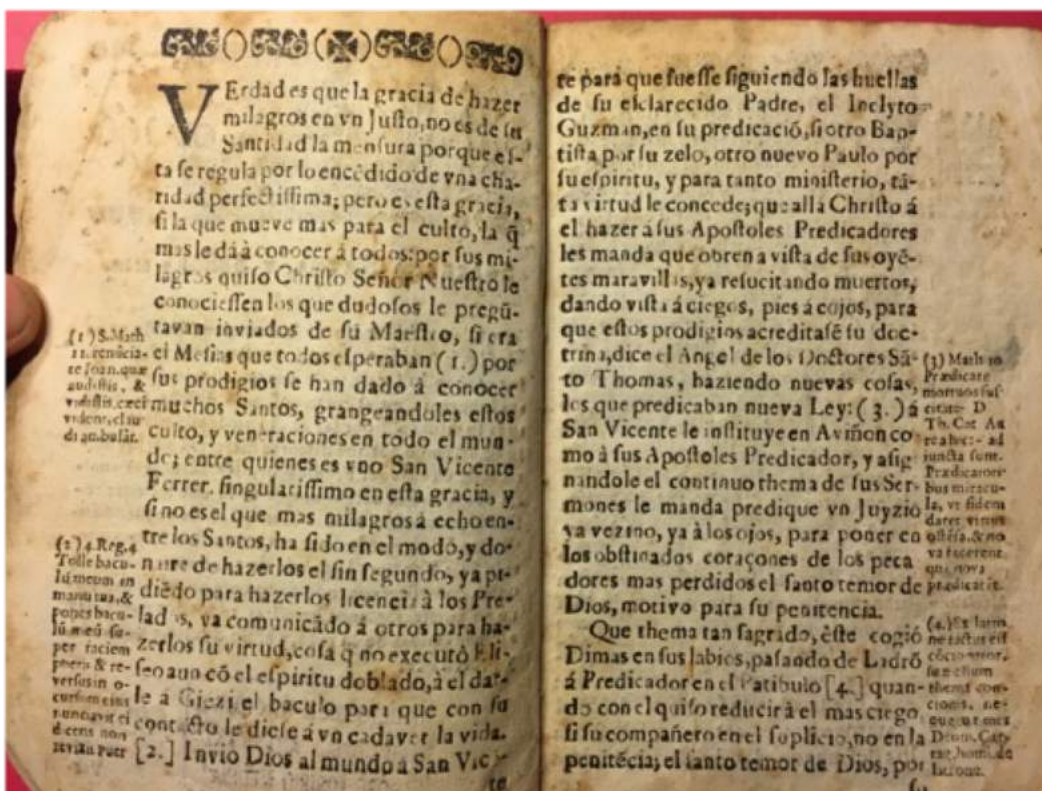 VErdad es que la gracia de hazer
milagros en vn Justo, no es de su
Santidad la mensura porque es-
ta se regula por lo encédido de vna cha-
ridad perfectissima; pero es esta gracia,
si la que mueve mas para el culto, la q̃
mas le dá à conocer á todos: por sus mi-
lagros quiso Christo Señor Nuestro le
conociessen los que dudosos le pregũ-
tavan inviados de su Maestro, si era
el Mesias que todos esperaban (1.) por
sus prodigios se han dado á conocer
muchos Santos, grangeandoles estos
culto, y veneraciones en todo el mun-
do; entre quienes es vno San Vicente
Ferrer, singularissimo en esta gracia, y
si no es el que mas milagros á echo en-
tre los Santos, ha sido en el modo, y do-
nayre de hazerlos el sin segundo, ya pi-
diēdo para hazerlos licencia à los Pre-
lados, ya comunicãdo á otros para ha-
zerlos su virtud, cosa q̃ no executó Eli-
seo aun cõ el espiritu doblado, à el dar-
le à Giezi el baculo para que con su
contacto le diese á vn cadaver la vida.
[2.] Invió Dios al mundo á San Vic-
te
(1) S. Math
11. renũcia-
te Joan. quæ
audistis, &
vidistis, cæci
vident, clau
di ambulãt.
(2) 4. Reg. 4
Tolle bacu-
lũ meum in
manu tua, &
pones bacu-
lũ meũ su-
per faciem
pueri & re-
versus in o-
cursum eius
nunciavit ei
dicens non
puer
te para que fuesse siguiendo las huellas
de su esclarecido Padre, el Inclyto
Guzman, en su predicació, si otro Bap-
tista por su zelo, otro nuevo Paulo por
su espiritu, y para tanto ministerio, tã-
ta virtud le concede; que allá Christo á
el hazer á sus Apostoles Predicadores
les manda que obren a vista de sus oyẽ-
tes maravillas, ya resucitando muertos,
dando vista á ciegos, pies á cojos, para
que estos prodigios acreditasẽ su doc-
trina, dice el Angel de los Doctores Sã-
to Thomas, haziendo nuevas cosas,
los que predicaban nueva Ley: (3.) á
San Vicente le instituye en Aviñon co
mo à sus Apostoles Predicador, y asig
nandole el continuo thema de sus Ser-
mones le manda predique vn Juyzio
ya vezino, ya à los ojos, para poner en
los obstinados coraçones de los peca
dores mas perdidos el santo temor de
Dios, motivo para su penitencia.
Que thema tan sagrado, èste cogió
Dimas en sus labios, pasando de Ladrõ
á Predicador en el Patibulo [4.] quan-
do con el quiso reducir à el mas ciego
si su compañero en el suplicio, no en la
penitẽcia; el santo temor de Dios, por
su
(3) Math 10
Prædicate
mortuos sus
citate D.
Th. Cat. Au
rea hic: ad
iuncta sunt.
Prædicatori-
bus miracu-
la, vt fidem
daret virtus
& no
va facerent
qui nova
prædicarẽt.
(4.)
thema con-
cionis, ne-
que
Deum.